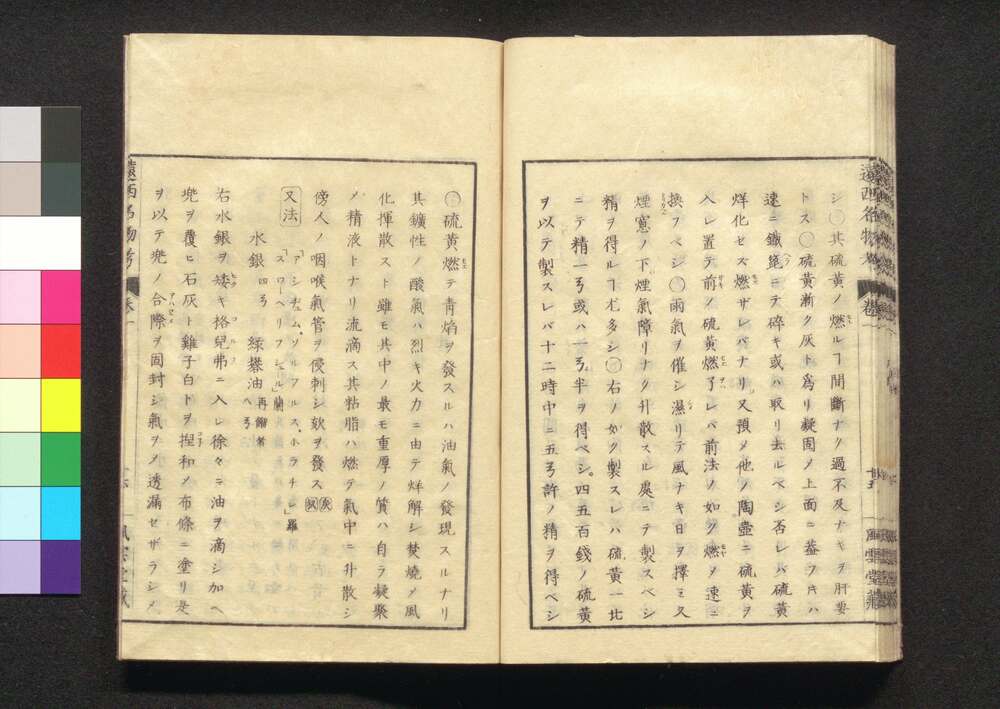 シ〇其硫黄ノ燃ルヿ間斷ナク過不及ナキヲ肝要
トス〇硫黄漸ク灰ト爲リ凝固メ上面ニ葢フ片ハ
速ニ鐵篦ニテ碎キ或ハ取リ去ルベシ否レバ硫黄
烊化セズ燃ザレバナリ又預メ他ノ陶壷ニ硫黄ヲ
入レ置テ前ノ硫黄燃了レバ前法ノ如ク燃メ速ニ
換フベシ〇雨氣ヲ催シ濕リテ風ナキ日ヲ擇ミ又
煙窓ノ下煙氣障リナク升散スル處ニテ製スベシ
精ヲ得ルヿ尤多シ〇右ノ如ク製スレハ硫黄一比
ニテ精一弓或ハ一弓半ヲ得ベシ。四五百錢ノ硫黄
ヲ以テ製スレバ十二時中ニ五弓許ノ精ヲ得ベシ
遠西名物考 卷一
廿五
風雲堂藏
硫黄燃テ青焔ヲ發スルハ油氣ノ發現スルナリ
其鑛性ノ酸氣ハ烈キ火力ニ由テ烊解シ焚燒メ風
化揮散スト雖モ其中ノ最モ重厚ノ質ハ自ラ凝聚
メ精液トナリ流滴ス其粘脂ハ燃テ氣中ニ升散シ
傍人ノ咽喉氣管ヲ侵刺シ欬ヲ發ス
又法 「アシデュム、ソルフルス、ホラチ」羅
「スローヘリフシュル」蘭
水銀 四弓 緑礬油 再餾者 八弓
右水銀ヲ矮キ格兒弗ニ入レ徐々ニ油ヲ滴シ加ヘ
兠ヲ覆ヒ石灰ト雞子白トヲ揑和メ布條ニ塗リ是
ヲ以テ兠ノ合際ヲ固封シ氣ヲメ透漏セザラシメ
遠西名物考 卷一